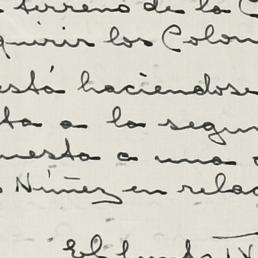 terreno de la C
quirir los Colon
está haciendose
ta a la segun
uesta a una
Núñez en relac
El